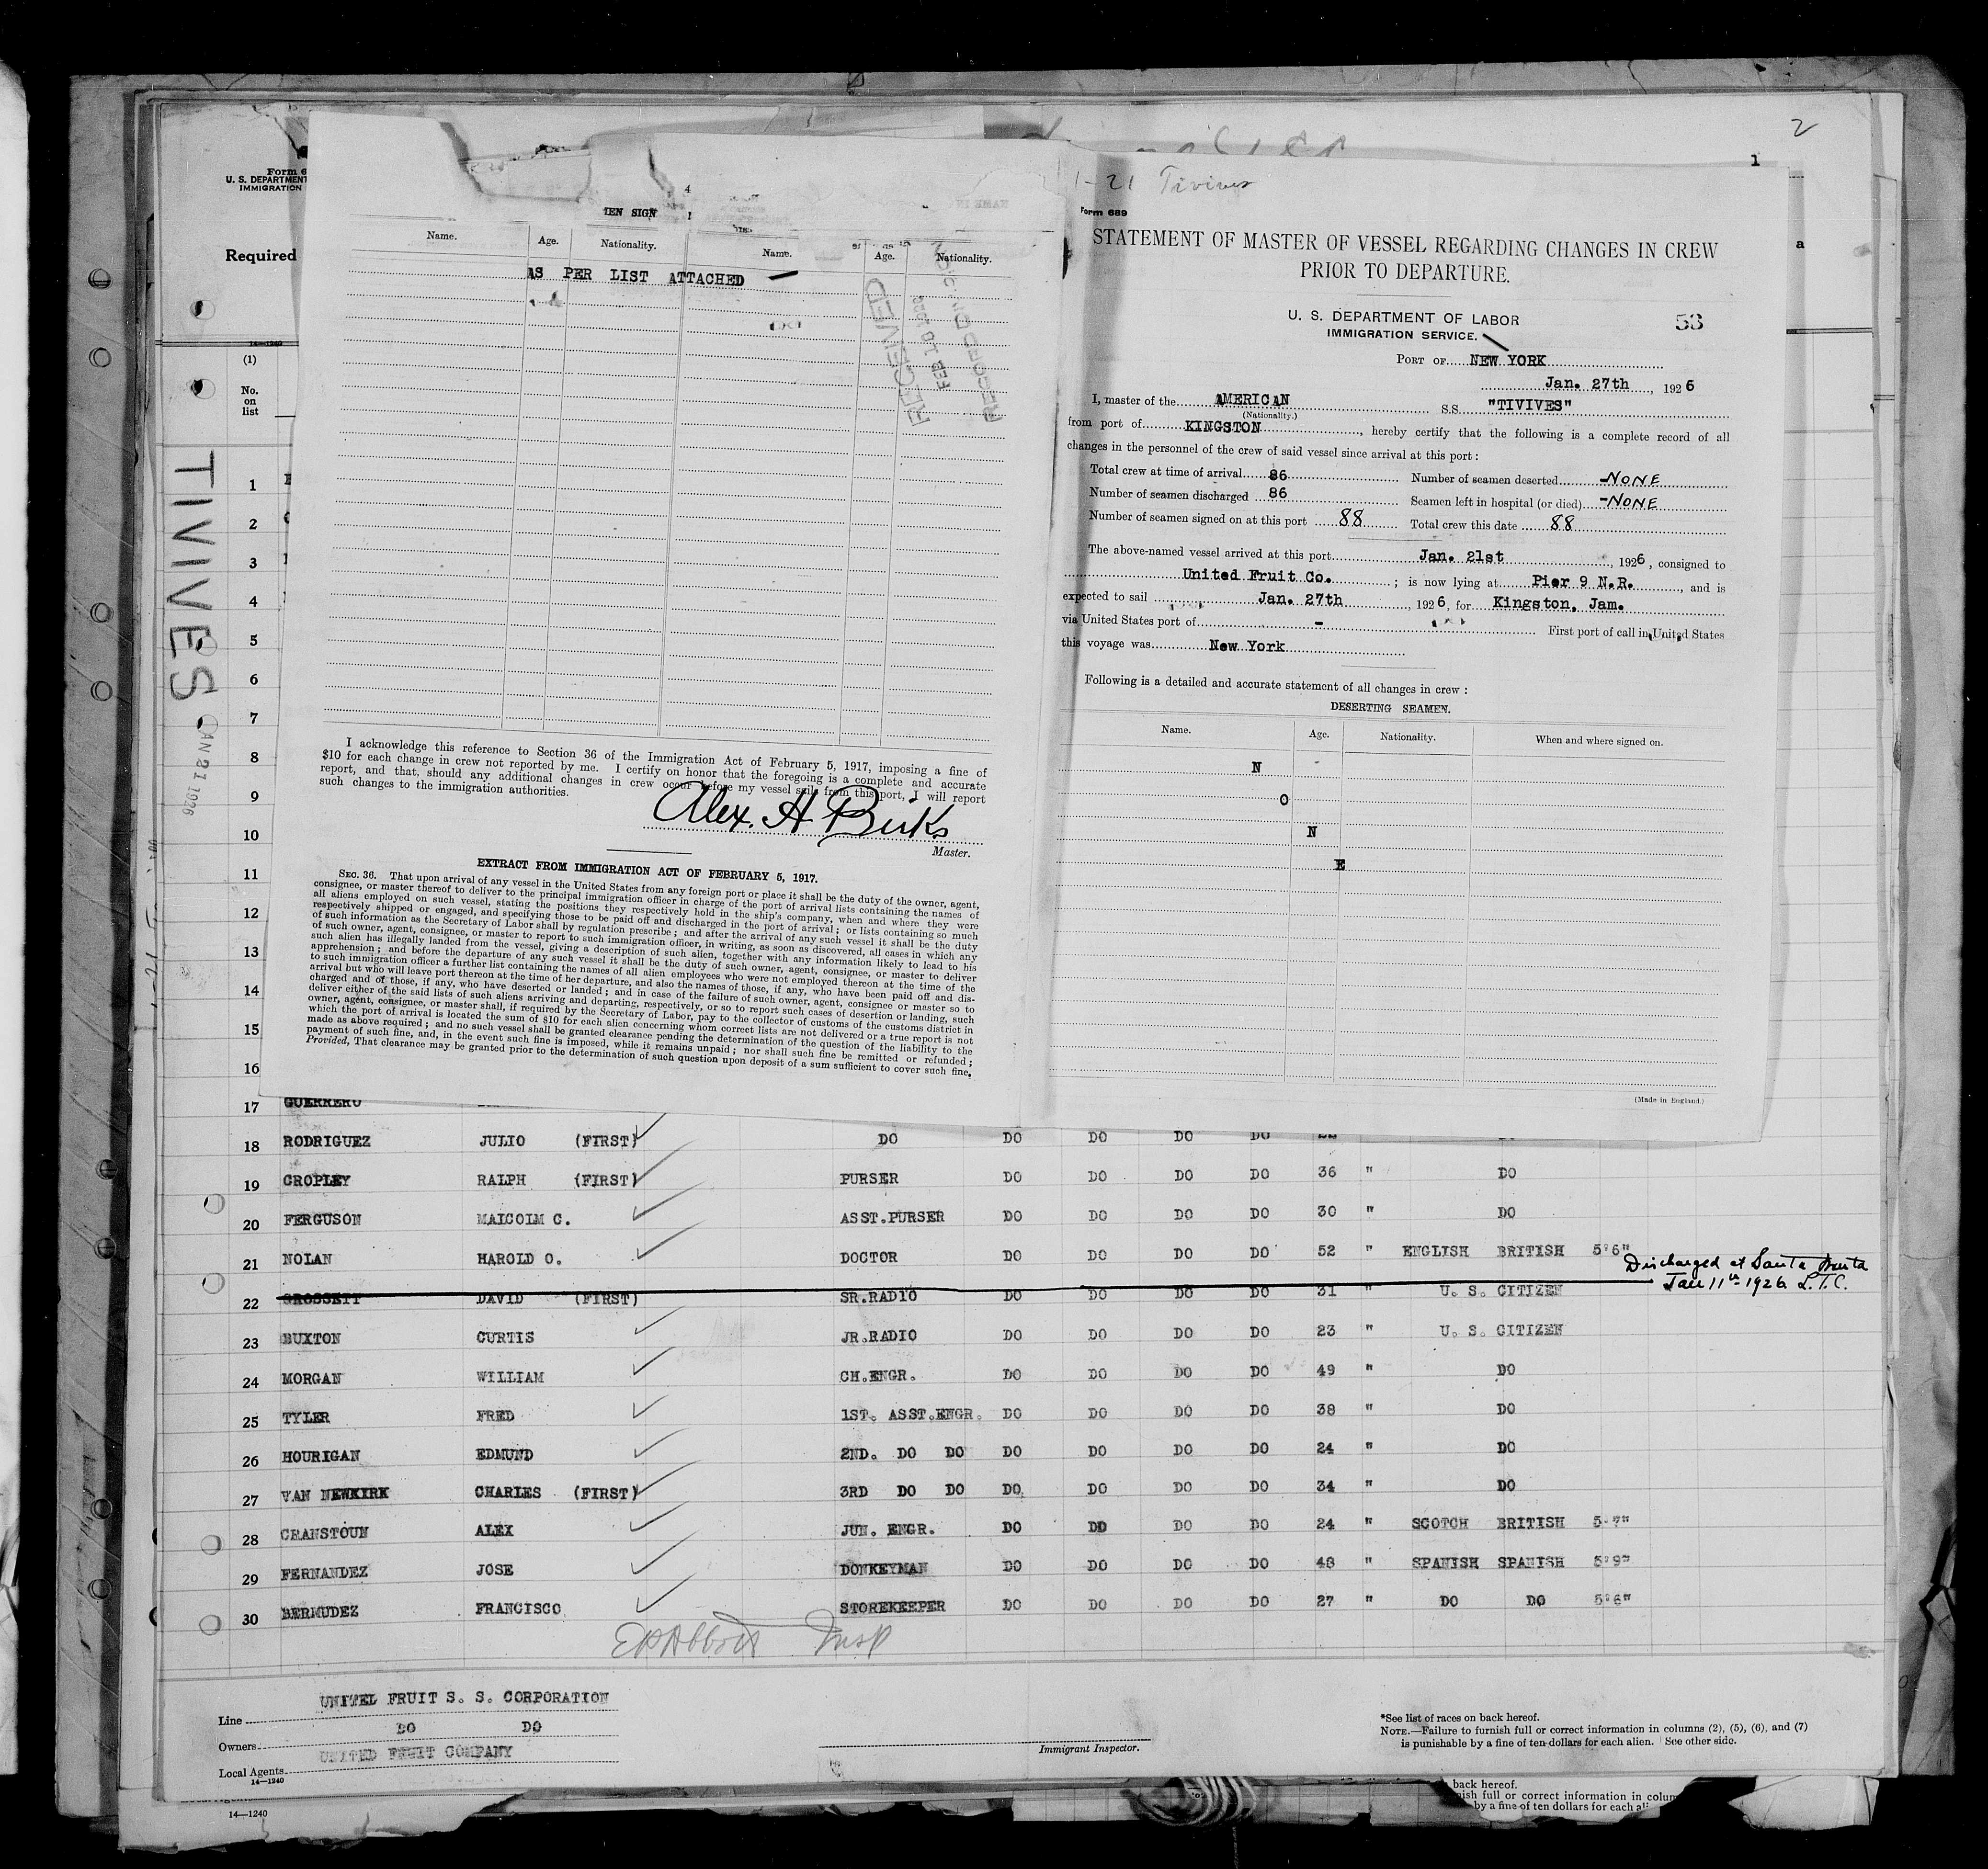 2
1
1-21 Tivives
Form 689
STATEMENT OF MASTER OF VESSEL REGARDING CHANGES IN CREW
PRIOR TO DEPARTURE.
U. S. DEPARTMENT OF LABOR
IMMIGRATION SERVICE.
53
PORT OF NEW YORK
Jan. 27th, 1926
I, master of the AMERICAN S.S. "TIVIVES"
(Nationality.)
from port of KINGSTON, hereby certify that the following is a complete record of all
changes in the personnel of the crew of said vessel since arrival at this port:
Total crew at time of arrival 86 Number of seamen deserted -NONE
Number of seamen discharged 86 Seamen left in hospital (or died) -NONE
Number of seamen signed on at this port 88 Total crew this date 88
The above-named vessel arrived at this port Jan. 21st, 1926, consigned to
United Fruit Co. ; is now lying at Pier 9 N.R., and is
expected to sail Jan. 27th, 1926, for Kingston, Jam.
via United States port of - First port of call in United States
this voyage was New York
Following is a detailed and accurate statement of all changes in crew:
DESERTING SEAMEN.
Name. Age. Nationality. When and where signed on.
N
O
N
E
(Made in England.)
4
IEN SIGN
Name. Age. Nationality. Name. Age. Nationality.
AS PER LIST ATTACHED
RECEIVED
FEB 18 1926
RECORD DIV
I acknowledge this reference to Section 36 of the Immigration Act of February 5, 1917, imposing a fine of
$10 for each change in crew not reported by me. I certify on honor that the foregoing is a complete and accurate
report, and that, should any additional changes in crew occur before my vessel sails from this port, I will report
such changes to the immigration authorities.
Alex. H Birks
Master.
EXTRACT FROM IMMIGRATION ACT OF FEBRUARY 5, 1917.
SEC. 36. That upon arrival of any vessel in the United States from any foreign port or place it shall be the duty of the owner, agent,
consignee, or master thereof to deliver to the principal immigration officer in charge of the port of arrival lists containing the names of
all aliens employed on such vessel, stating the positions they respectively hold in the ship's company, when and where they were
respectively shipped or engaged, and specifying those to be paid off and discharged in the port of arrival; or lists containing so much
of such information as the Secretary of Labor shall by regulation prescribe; and after the arrival of any such vessel it shall be the duty
of such owner, agent, consignee, or master to report to such immigration officer, in writing, as soon as discovered, all cases in which any
such alien has illegally landed from the vessel, giving a description of such alien, together with any information likely to lead to his
apprehension; and before the departure of any such vessel it shall be the duty of such owner, agent, consignee, or master to deliver
to such immigration officer a further list containing the names of all alien employees who were not employed thereon at the time of the
arrival but who will leave port thereon at the time of her departure, and also the names of those, if any, who have been paid off and dis-
charged and of those, if any, who have deserted or landed; and in case of the failure of such owner, agent, consignee or master so to
deliver either of the said lists of such aliens arriving and departing, respectively, or so to report such cases of desertion or landing, such
owner, agent, consignee, or master shall, if required by the Secretary of Labor, pay to the collector of customs of the customs district in
which the port of arrival is located the sum of $10 for each alien concerning whom correct lists are not delivered or a true report is not
made as above required; and no such vessel shall be granted clearance pending the determination of the question of the liability to the
payment of such fine, and, in the event such fine is imposed, while it remains unpaid; nor shall such fine be remitted or refunded;
Provided, That clearance may be granted prior to the determination of such question upon deposit of a sum sufficient to cover such fine.
Form 6
U. S. DEPARTMENT
IMMIGRATION
Required
a
14-1240
(1)
No.
on
list
TIVIVES
JAN 21 1926
1
2
3
4
5
6
7
8
9
10
11
12
13
14
15
16
17 GUERRERO
18 RODRIGUEZ JULIO (FIRST) DO DO DO DO DO
19 CROPLEY RALPH (FIRST) PURSER DO DO DO DO 36 " DO
20 FERGUSON MALCOLM C. ASST.PURSER DO DO DO DO 30 " DO
21 NOLAN HAROLD O. DOCTOR DO DO DO DO 52 " ENGLISH BRITISH 5'6"
Discharged at Santa Marta
Jan 11th 1926 L.T.C.
22 GROSSETT DAVID (FIRST) SR.RADIO DO DO DO DO 31 " U. S. CITIZEN
23 BUXTON CURTIS JR.RADIO DO DO DO DO 23 " U. S. CITIZEN
24 MORGAN WILLIAM CH.ENGR. DO DO DO DO 49 " DO
25 TYLER FRED 1ST. ASST.ENGR. DO DO DO DO 38 " DO
26 HOURIGAN EDMUND 2ND. DO DO DO DO DO DO 24 " DO
27 VAN NEWKIRK CHARLES (FIRST) 3RD DO DO DO DO DO DO 34 " DO
28 CRANSTOUN ALEX JUN. ENGR. DO DO DO DO 24 " SCOTCH BRITISH 5-7"
29 FERNANDEZ JOSE DONKEYMAN DO DO DO DO 48 " SPANISH SPANISH 5'9"
30 BERMUDEZ FRANCISCO STOREKEEPER DO DO DO DO 27 " DO DO 5'6"
Insp
Line UNITED FRUIT S. S. CORPORATION
Owners DO DO
Local Agents UNITED FRUIT COMPANY
14-1240
Immigrant Inspector.
*See list of races on back hereof.
NOTE.—Failure to furnish full or correct information in columns (2), (5), (6), and (7)
is punishable by a fine of ten dollars for each alien. See other side.
back hereof.
ish full or correct information in colum
by a fine of ten dollars for each ali
14-1240